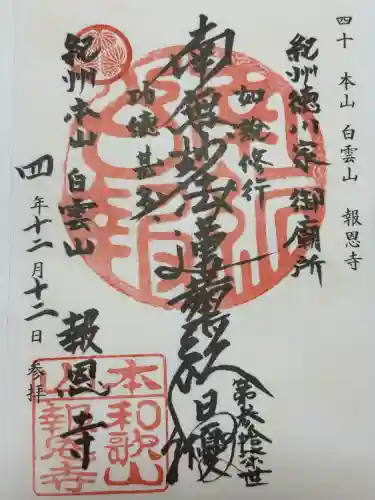 四十 本山 白雲山 報恩寺
紀州徳川家 御願所
如説修行
南無妙法蓮華経
日優
第参拾柒世
功徳甚多
紀州本山 白雲山 報恩寺
四年十二月十二日 参拝
本和歌山
報恩寺